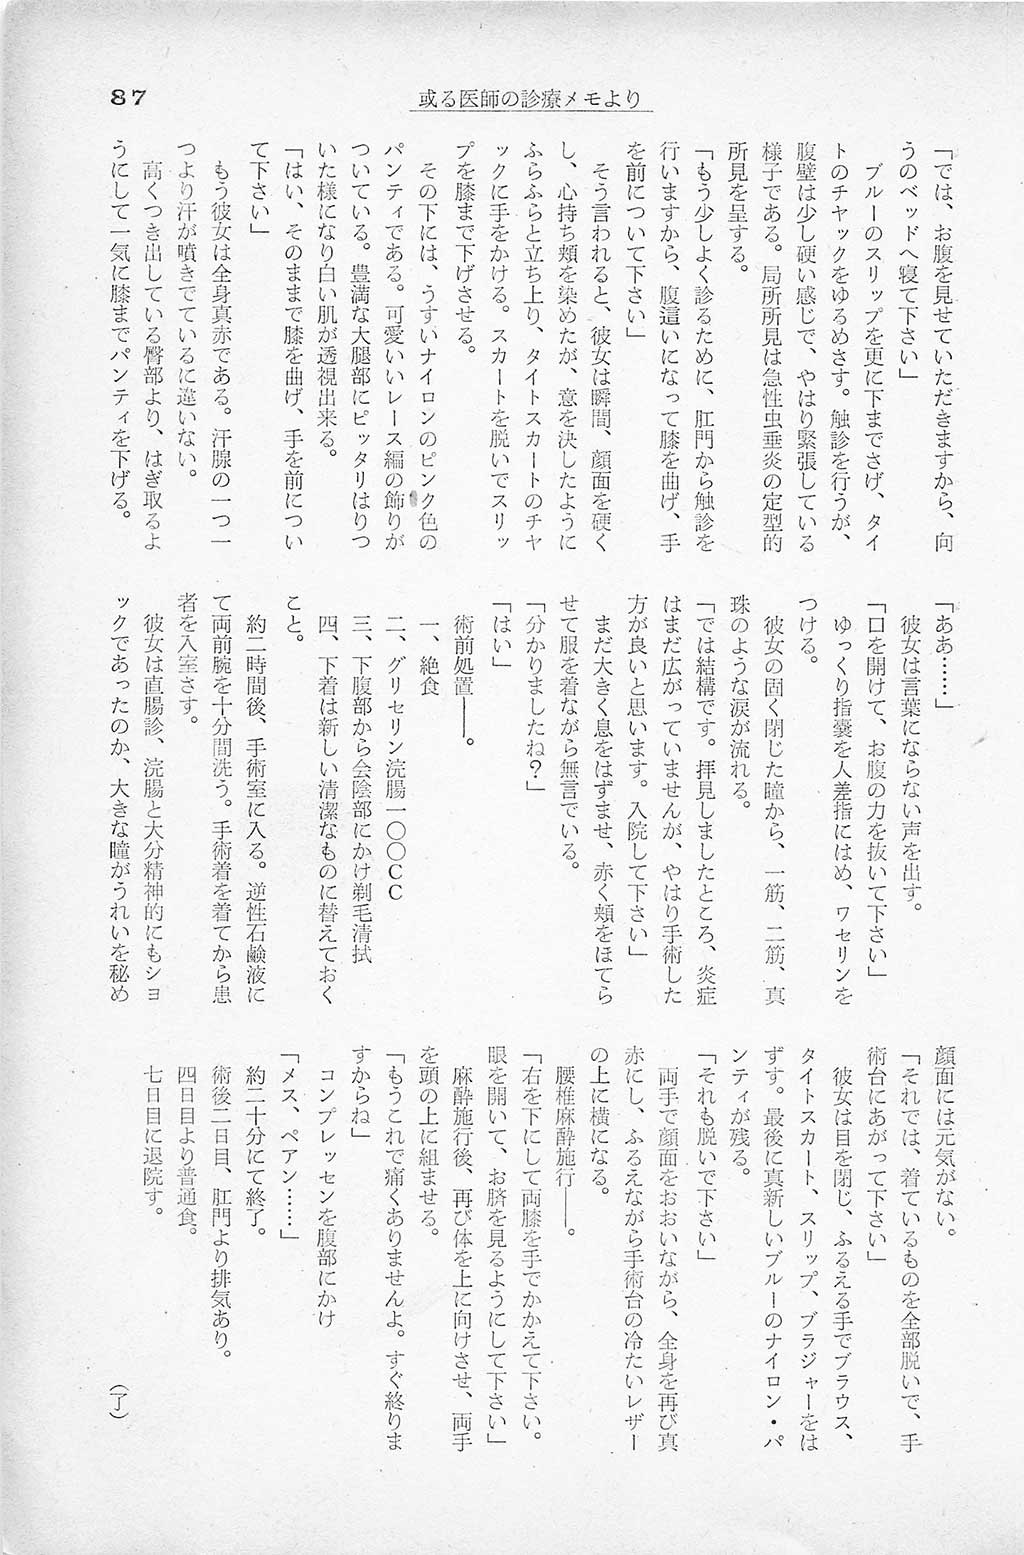 87
或る医師の診療メモより
「では、お腹を見せていただきますから、向
うのベッドへ寝て下さい」
ブルーのスリップを更に下までさげ、タイ
トのチャックをゆるめさす。触診を行うが、
腹壁は少し硬い感じで、やはり緊張している
様子である。局所所見は急性虫垂炎の定型的
所見を呈する。
「もう少しよく診るために、肛門から触診を
行いますから、腹這いになって膝を曲げ、手
を前について下さい」
そう言われると、彼女は瞬間、顔面を硬く
し、心持ち頬を染めたが、意を決したように
ふらふらと立ち上り、タイトスカートのチャ
ックに手をかける。スカートを脱いでスリッ
プを膝まで下げさせる。
その下には、うすいナイロンのピンク色の
パンティである。可愛いいレース編の飾りが
ついている。豊満な大腿部にピッタリはりつ
いた様になり白い肌が透視出来る。
「はい、そのままで膝を曲げ、手を前につい
て下さい」
もう彼女は全身真赤である。汗腺の一つ一
つより汗が噴きでているに違いない。
高くつき出している臀部より、はぎ取るよ
うにして一気に膝までパンティを下げる。
「ああ……」
彼女は言葉にならない声を出す。
「口を開けて、お腹の力を抜いて下さい」
ゆっくり指嚢を人差指にはめ、ワセリンを
つける。
彼女の固く閉じた瞳から、一筋、二筋、真
珠のような涙が流れる。
「では結構です。拝見しましたところ、炎症
はまだ広がっていませんが、やはり手術した
方が良いと思います。入院して下さい」
まだ大きく息をはずませ、赤く頬をほてら
せて服を着ながら無言でいる。
「分かりましたね？」
「はい」
術前処置――。
一、絶食
二、グリセリン浣腸一〇〇CC
三、下腹部から会陰部にかけ剃毛清拭
四、下着は新しい清潔なものに替えておく
こと。
約二時間後、手術室に入る。逆性石鹸液に
て両前腕を十分間洗う。手術着を着てから患
者を入室さす。
彼女は直腸診、浣腸と大分精神的にもショ
ックであったのか、大きな瞳がうれいを秘め
顔面には元気がない。
「それでは、着ているものを全部脱いで、手
術台にあがって下さい」
彼女は目を閉じ、ふるえる手でブラウス、
タイトスカート、スリップ、ブラジャーをは
ずす。最後に真新しいブルーのナイロン・パ
ンティが残る。
「それも脱いで下さい」
両手で顔面をおおいながら、全身を再び真
赤にし、ふるえながら手術台の冷たいレザー
の上に横になる。
腰椎麻酔施行――。
「右を下にして両膝を手でかかえて下さい。
眼を開いて、お臍を見るようにして下さい」
麻酔施行後、再び体を上に向けさせ、両手
を頭の上に組ませる。
「もうこれで痛くありませんよ。すぐ終りま
すからね」
コンプレッセンを腹部にかけ
「メス、ペアン……」
約二十分にて終了。
術後二日目、肛門より排気あり。
四日目より普通食。
七日目に退院す。
（了）